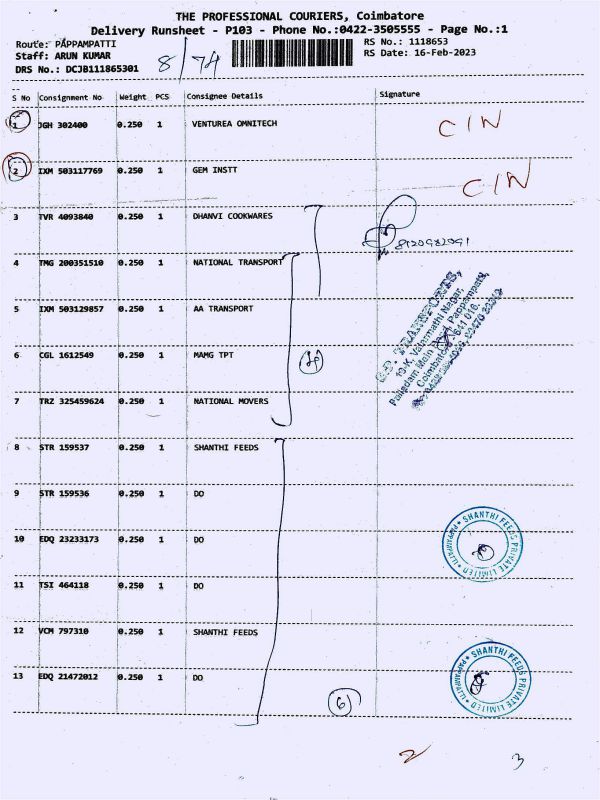 THE PROFESSIONAL COURIERS, Coimbatore
Delivery Runsheet - P103 - Phone No.:0422-3505555 - Page No.:1
Route: PAPPAMPATTI
RS No.: 1118653
Staff: ARUN KUMAR
RS Date: 16-Feb-2023
DRS No.: DCJB111865301
8/74
S No Consignment No Weight PCS Consignee Details Signature
1 JGH 302400 0.250 1 VENTUREA OMNITECH CIN
2 IXM 503117769 0.250 1 GEM INSTT CIN
3 TVR 4093840 0.250 1 DHANVI COOKWARES
4 TMG 200351510 0.250 1 NATIONAL TRANSPORT
5 IXM 503129857 0.250 1 AA TRANSPORT
6 CGL 1612549 0.250 1 MAMG TPT
7 TRZ 325459624 0.250 1 NATIONAL MOVERS
TRANSPORTS,
Valarmathi Nagar,
Palladam Main Road, Pappampatti,
Coimbatore - 641 016.
8 STR 159537 0.250 1 SHANTHI FEEDS
9 STR 159536 0.250 1 DO
10 EDQ 23233173 0.250 1 DO
SHANTHI FEEDS PRIVATE LIMITED PAPPAMPATTI
11 TSI 464118 0.250 1 DO
12 VCM 797310 0.250 1 SHANTHI FEEDS
13 EDQ 21472012 0.250 1 DO
SHANTHI FEEDS PRIVATE LIMITED PAPPAMPATTI
6
2 3